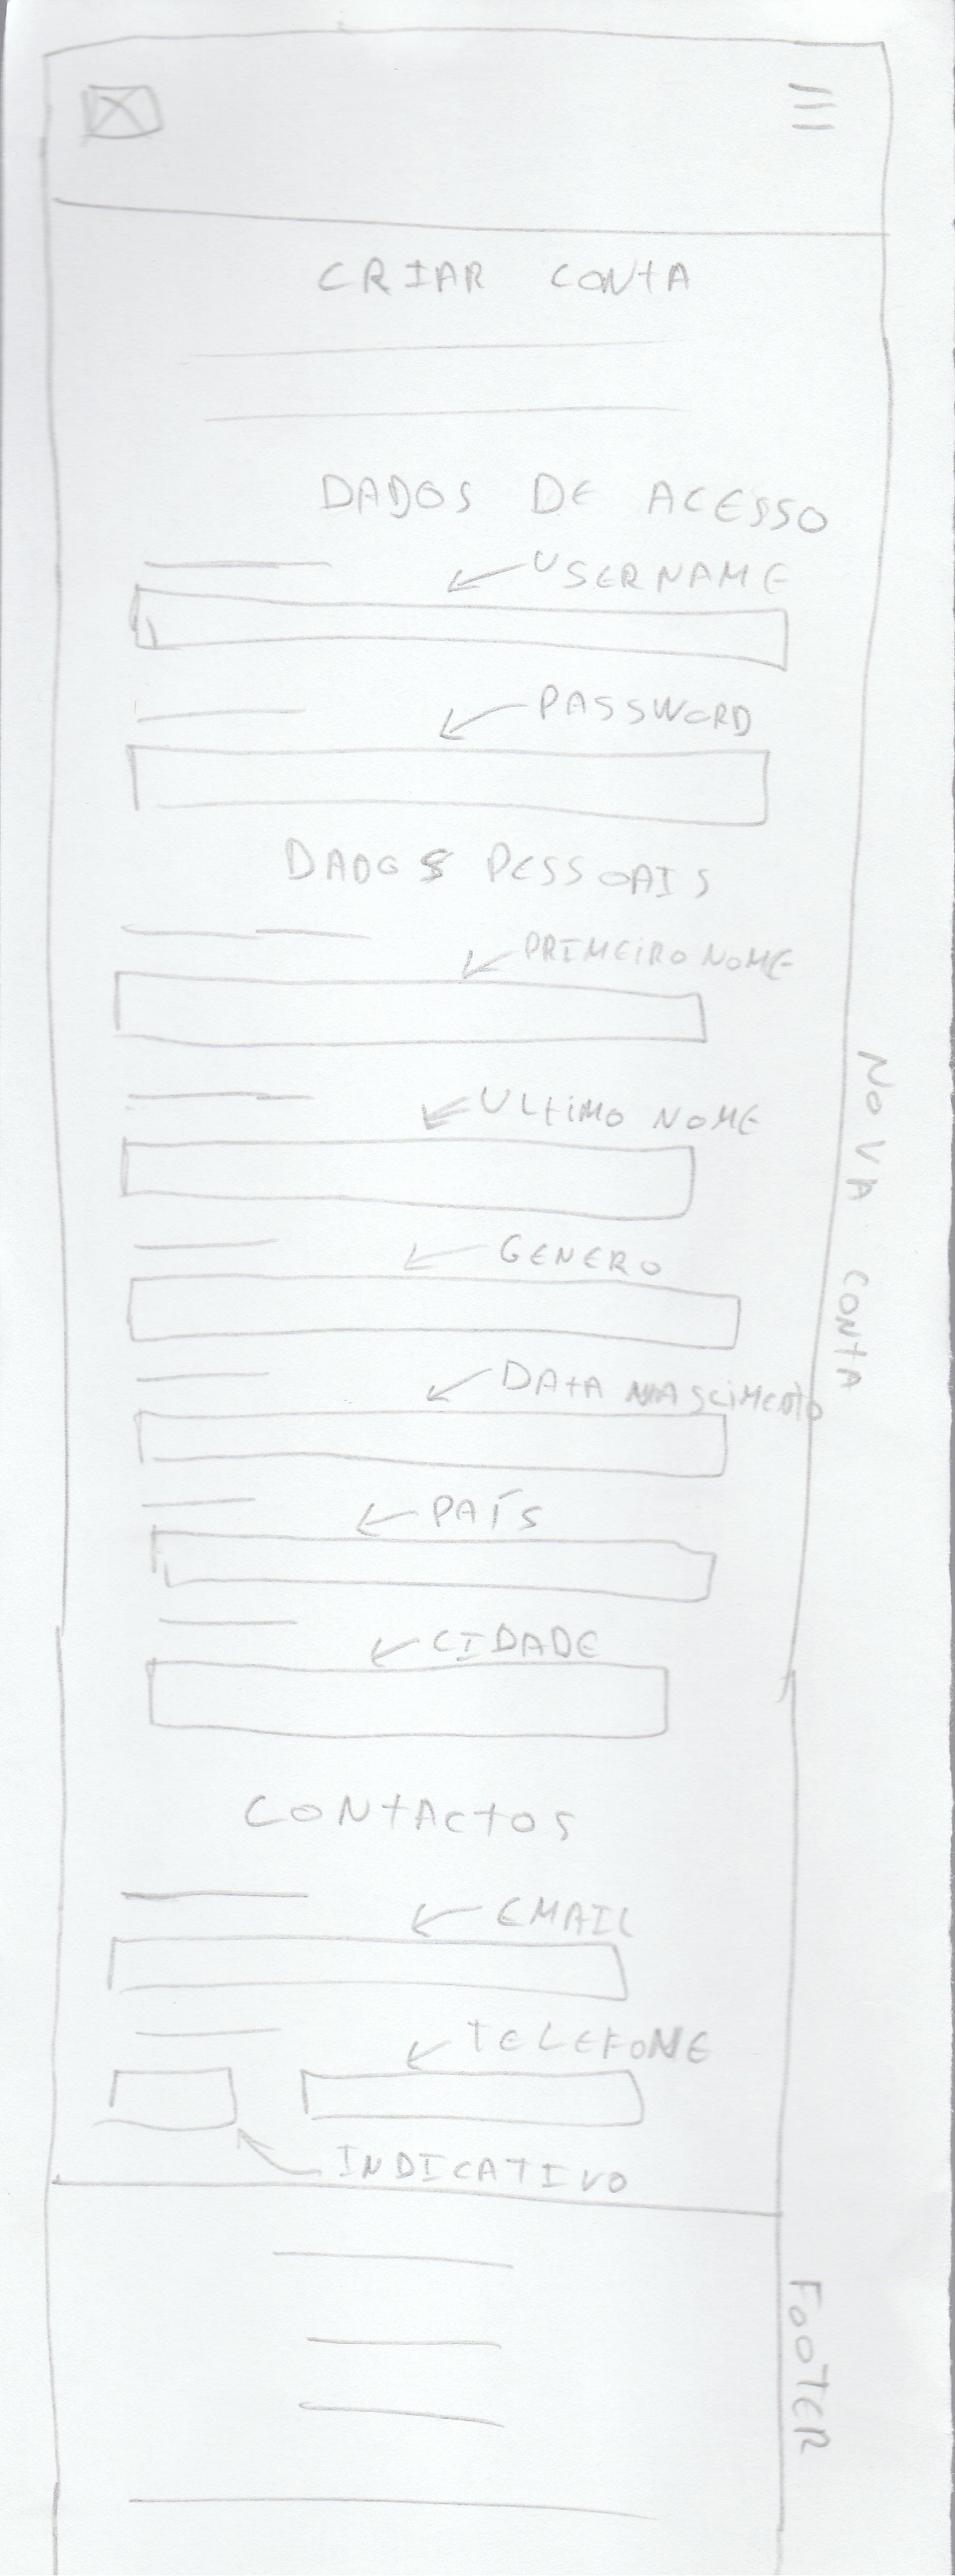 CRIAR CONTA
DADOS DE ACESSO
USERNAME
PASSWORD
DADOS PESSOAIS
PRIMEIRO NOME
ULTIMO NOME
GENERO
DATA NASCIMENTO
PAÍS
CIDADE
NOVA CONTA
CONTACTOS
EMAIL
TELEFONE
INDICATIVO
FOOTER